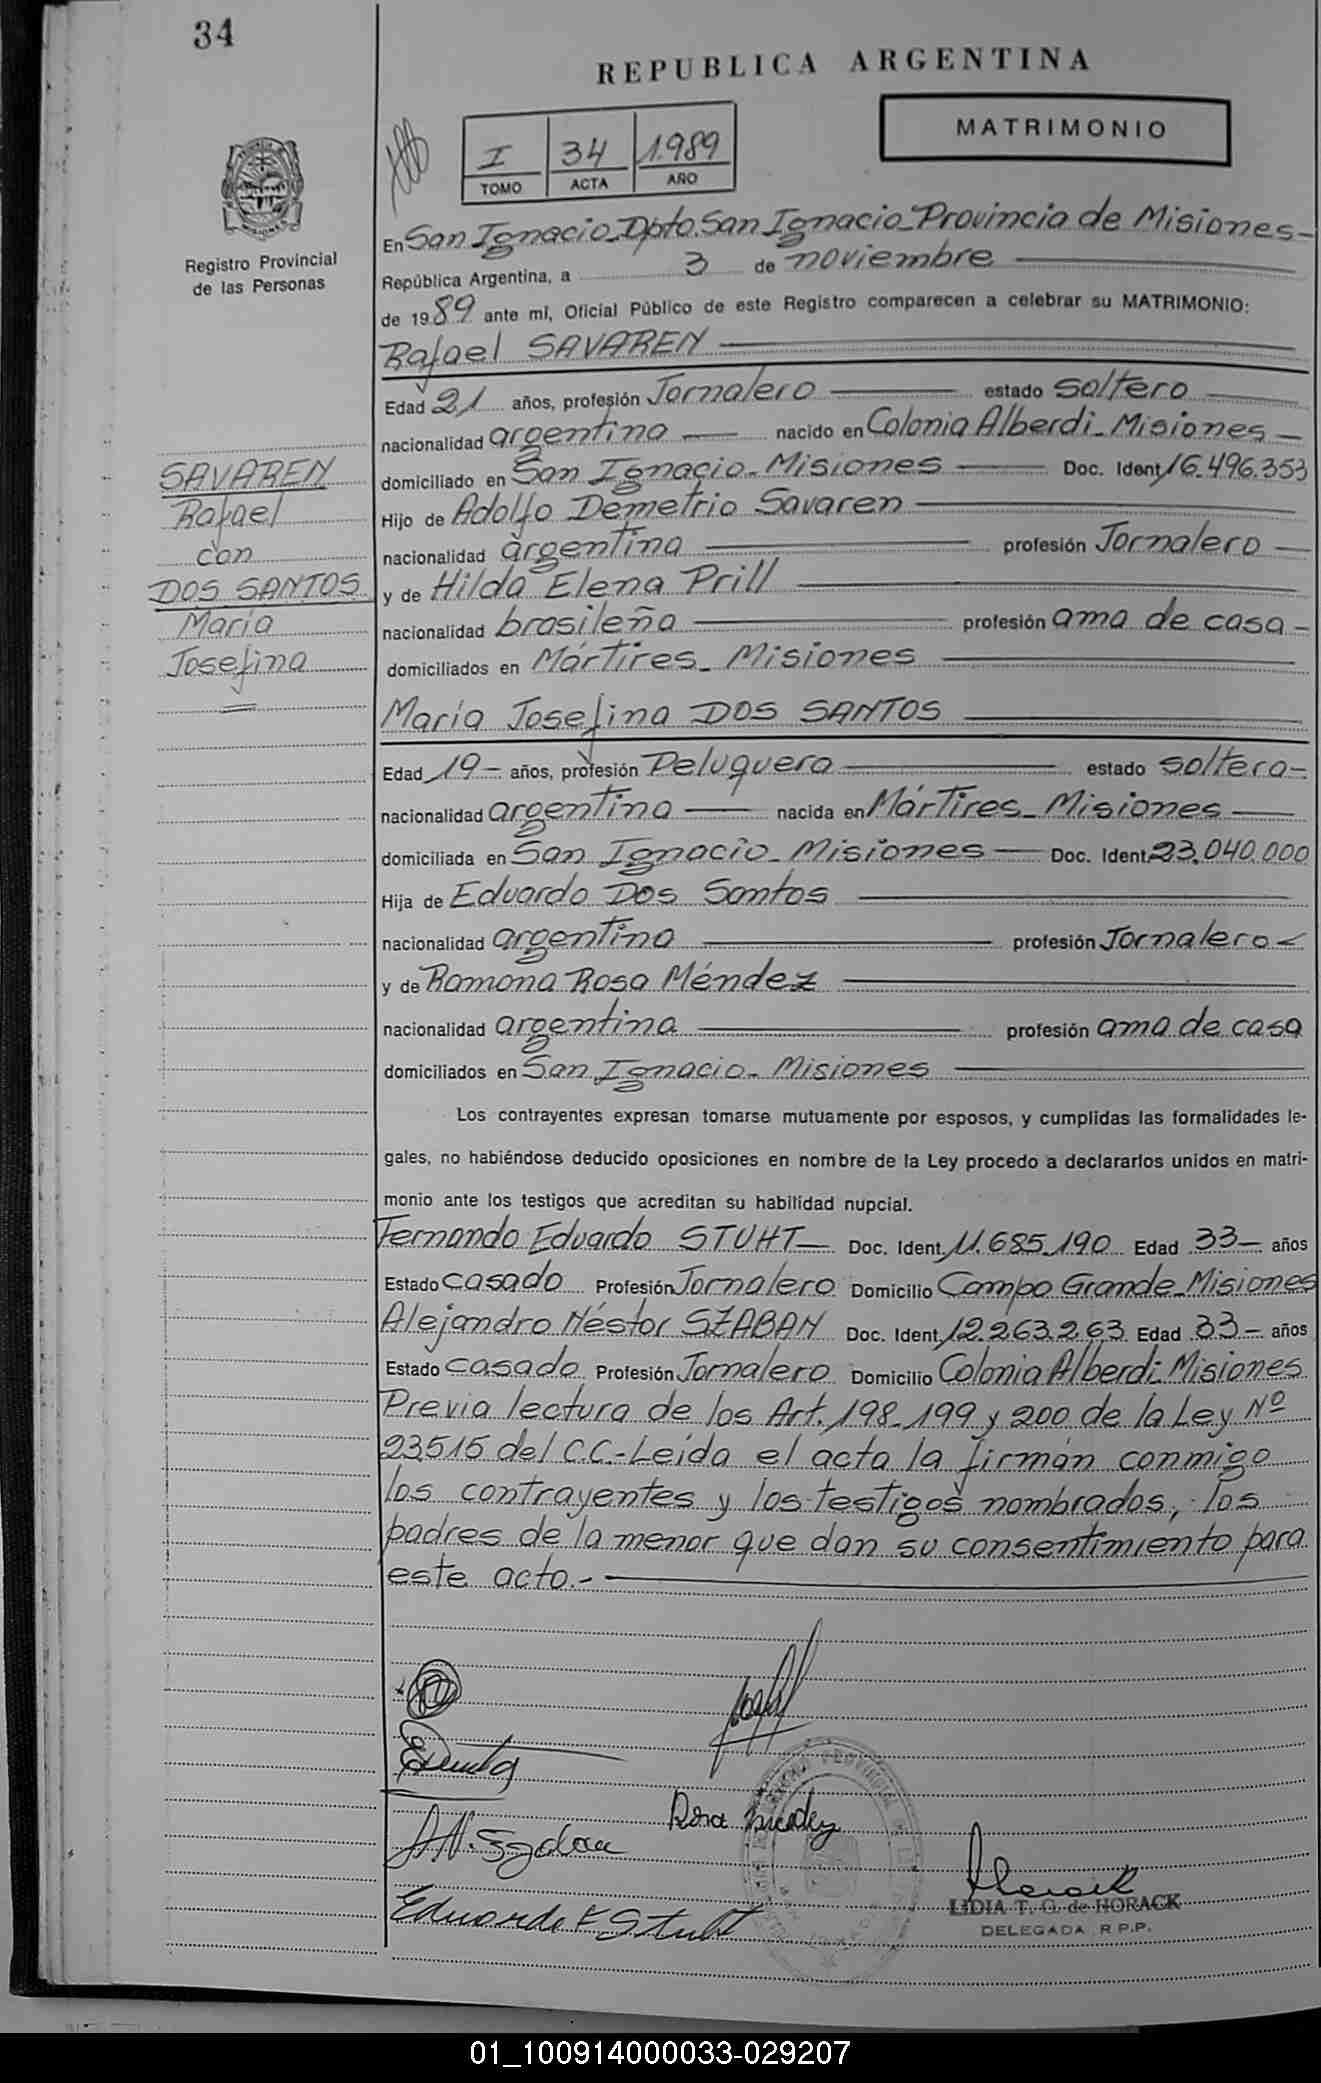 34
REPUBLICA ARGENTINA
MATRIMONIO
I 34 1.989
TOMO ACTA AÑO
Registro Provincial
de las Personas
En San Ignacio_Dpto. San Ignacio_Provincia de Misiones-
República Argentina, a 3 de noviembre
de 1989 ante mí, Oficial Público de este Registro comparecen a celebrar su MATRIMONIO:
Rafael SAVAREN
Edad 21 años, profesión Jornalero estado soltero
nacionalidad argentina nacido en Colonia Alberdi_Misiones
domiciliado en San Ignacio_Misiones Doc. Ident. 16.496.353
Hijo de Adolfo Demetrio Savaren
nacionalidad argentina profesión Jornalero
y de Hilda Elena Prill
nacionalidad brasileña profesión ama de casa
domiciliados en Mártires_Misiones
SAVAREN
Rafael
con
DOS SANTOS
María
Josefina
María Josefina DOS SANTOS
Edad 19- años, profesión Peluquera estado soltera-
nacionalidad argentina nacida en Mártires_Misiones
domiciliada en San Ignacio_Misiones Doc. Ident. 23.040.000
Hija de Eduardo Dos Santos
nacionalidad argentina profesión Jornalero
y de Ramona Rosa Méndez
nacionalidad argentina profesión ama de casa
domiciliados en San Ignacio_Misiones
Los contrayentes expresan tomarse mutuamente por esposos, y cumplidas las formalidades le-
gales, no habiéndose deducido oposiciones en nombre de la Ley procedo a declararlos unidos en matri-
monio ante los testigos que acreditan su habilidad nupcial.
Fernando Eduardo STUHT Doc. Ident. 11.685.190 Edad 33- años
Estado casado Profesión Jornalero Domicilio Campo Grande_Misiones
Alejandro Néstor SZABAN Doc. Ident. 12.263.263 Edad 33- años
Estado casado Profesión Jornalero Domicilio Colonia Alberdi-Misiones
Previa lectura de los Art. 198-199 y 200 de la Ley Nº
23515 del C.C.-Leída el acta la firman conmigo
los contrayentes y los testigos nombrados, los
padres de la menor que dan su consentimiento para
este acto.-
Eduardo F Stuht
LIDIA T. O. de HORACK
DELEGADA R.P.P.
01_100914000033-029207